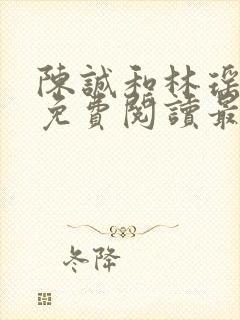 陳誠和林瑤
免費閱讀最
冬降